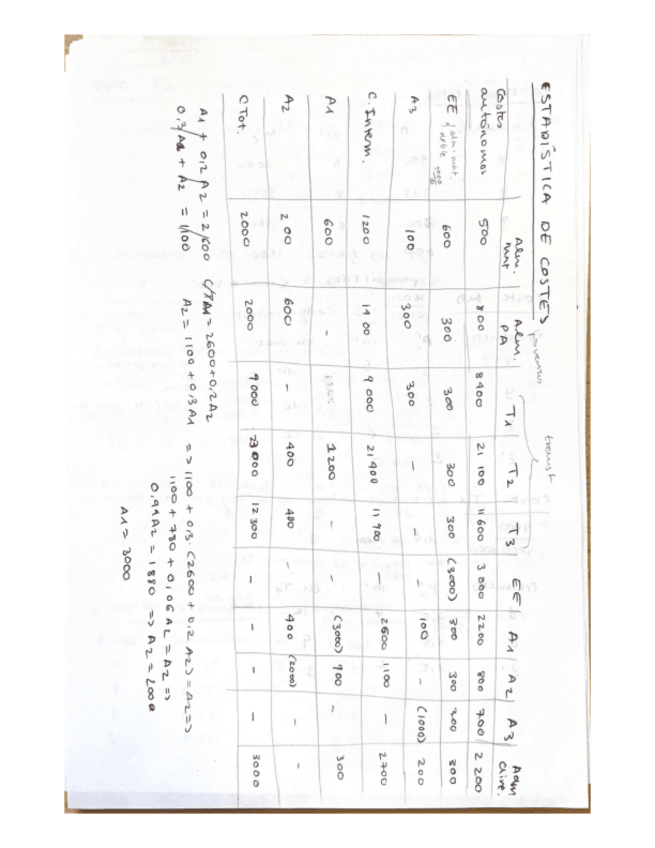 ESTADÍSTICA DE COSTES
Costes autónomos | Alm. mat | Alm. PA | T1 | T2 | T3 | EE | A1 | A2 | A3 | Adm
500 | 800 | 8400 | 21 100 | 11 600 | 3 000 | 2200 | 800 | 700 | 2 200
EE | 600 | 300 | 300 | 300 | 300 | (3000) | 300 | 300 | 300 | 300
A3 | 100 | 300 | 300 | - | - | - | 100 | - | (1000) | 200
C. Interm. | 1200 | 1400 | 9 000 | 21 400 | 11 900 | - | 2600 | 1100 | - | 2700
A1 | 600 | - | 1200 | - | - | (3000) | 900 | - | 300
A2 | 200 | 600 | - | 400 | 400 | - | 400 | (2000) | - | -
C Tot. | 2000 | 2000 | 9000 | 23 000 | 12 300 | - | - | - | - | 3000
A1 + 0,2 A2 = 2600
A1 = 2600 + 0,2 A2
0,3 A1 + A2 = 1100
A2 = 1100 + 0,3 A1 => 1100 + 0,3 · (2600 + 0,2 A2) = A2 =>
1100 + 780 + 0,06 A2 = A2 =>
0,94 A2 = 1880 => A2 = 2000
A1 = 3000